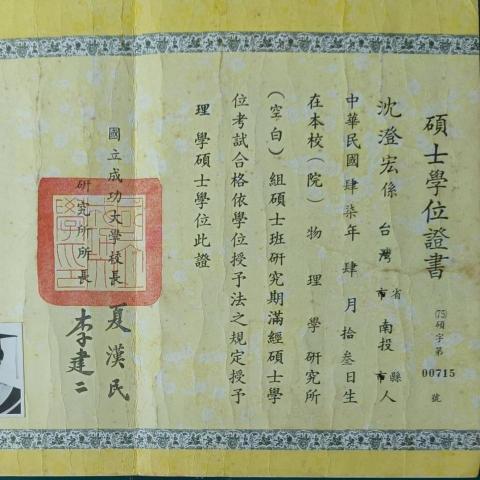 碩士學位證書
(75)碩字第00715號
沈澄宏係台灣省市南投縣市人
中華民國肆柒年肆月拾叁日生
在本校(院)物理學研究所
(空白)組碩士班研究期滿經碩士學
位考試合格依學位授予法之規定授予
理學碩士學位此證
國立成功大學校長 夏漢民
研究所所長 李建二